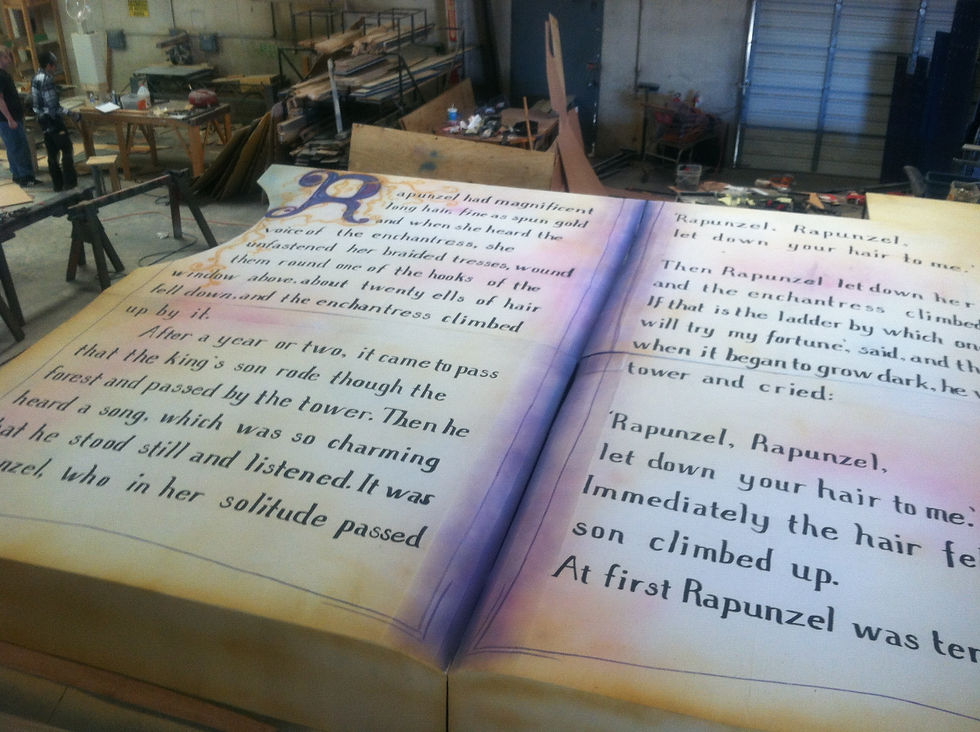 Rapunzel had magnificent
long hair, fine as spun gold
and when she heard the
voice of the enchantress, she
unfastened her braided tresses, wound
them round one of the hooks of the
window above, about twenty ells of hair
fell down, and the enchantress climbed
up by it.
After a year or two, it came to pass
that the king's son rode though the
forest and passed by the tower. Then he
heard a song, which was so charming
hat he stood still and listened. It was
nzel, who in her solitude passed
'Rapunzel, Rapunzel,
let down your hair to me.'
Then Rapunzel let down her
and the enchantress climbe
If that is the ladder by which on
will try my fortune', said, and th
when it began to grow dark, he
tower and cried:
'Rapunzel, Rapunzel,
let down your hair to me.'
Immediately the hair fe
son climbed up.
At first Rapunzel was ter